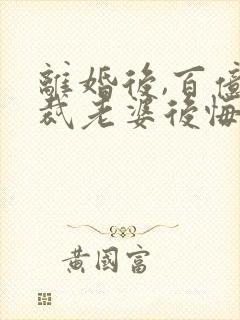 離婚後,百億
裁老婆後悔
黃國富